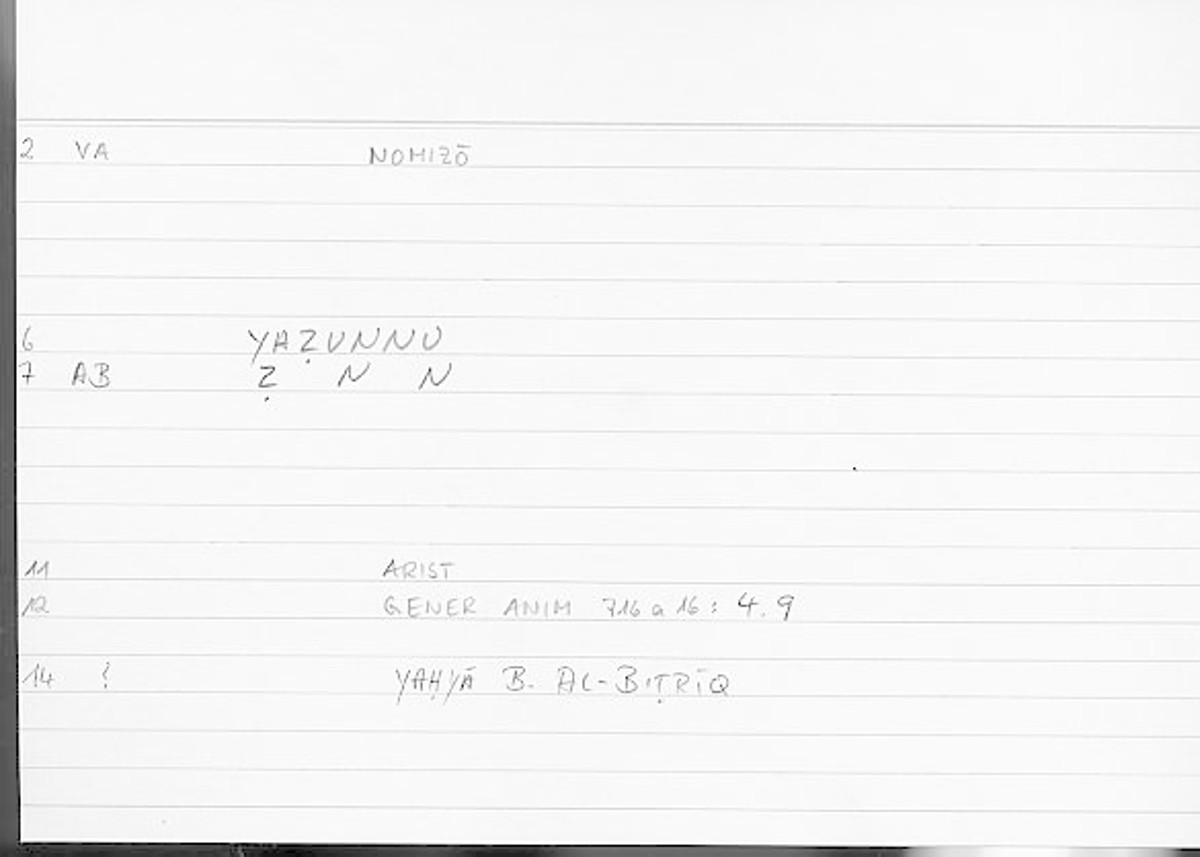 2 VA NOMIZŌ
6 YAẒUNNU
7 AB Ẓ N N
11 ARIST
12 GENER ANIM 716 a 16 : 4. 9
14 YAḤYĀ B. AL-BIṬRĪQ